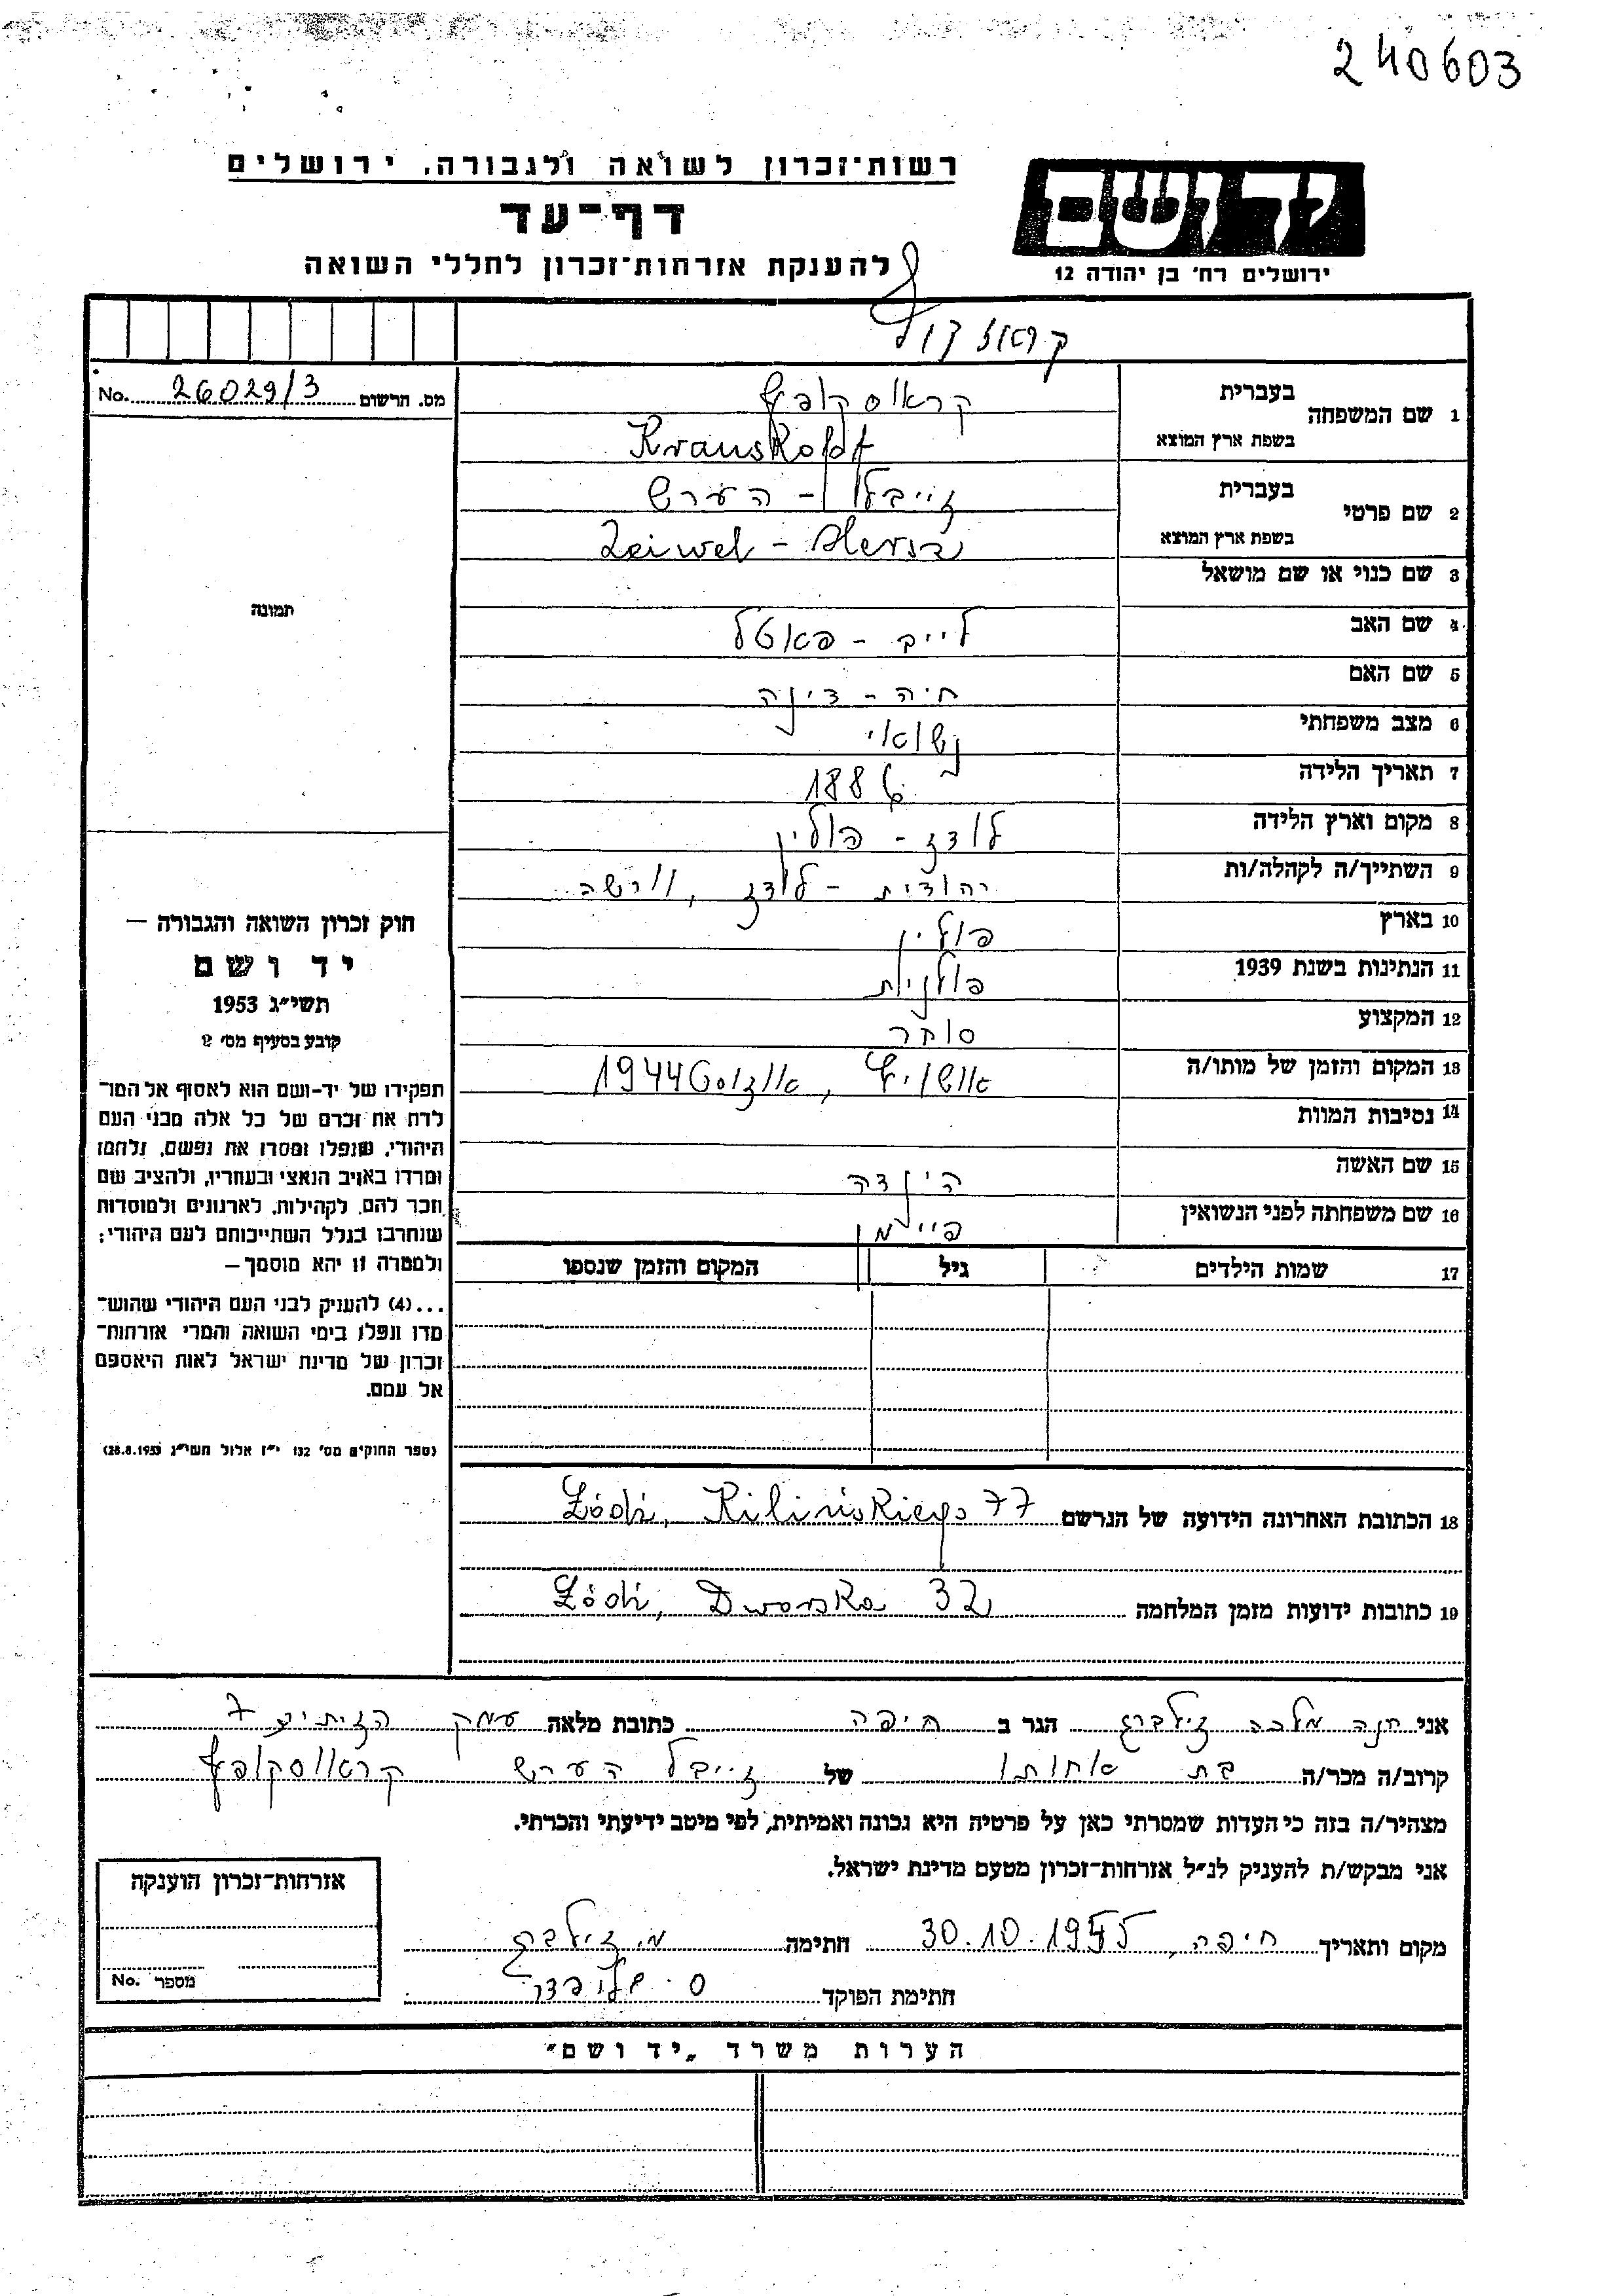 240603
רשות־זכרון לשואה ולגבורה, ירושלים
יד ושם
דף־עד
להענקת אזרחות־זכרון לחללי השואה
ירושלים רח' בן יהודה 12
מס. הרשום 26029/3 No.
1 שם המשפחה בעברית קראוסקופף
בשפת ארץ המוצא Krauskopf
2 שם פרטי בעברית זייבל - הערש
בשפת ארץ המוצא Zeiwel - Hersz
3 שם כנוי או שם מושאל
4 שם האב לייב - פאטל
5 שם האם חיה - דינה
6 מצב משפחתי נשואי
7 תאריך הלידה 1886
8 מקום וארץ הלידה לודז - פולין
9 השתייך/ה לקהלה/ות יהודית - לודז, וורשה
10 בארץ פולין
11 הנתינות בשנת 1939 פולנית
12 המקצוע סוחר
13 המקום והזמן של מותו/ה אושוויץ, אוגוסט 1944
14 נסיבות המוות
15 שם האשה הינדה
16 שם משפחתה לפני הנשואין פיימן
17 שמות הילדים גיל המקום והזמן שנספו
תמונה
חוק זכרון השואה והגבורה —
יד ושם
תשי״ג 1953
קובע בסעיף מס' 2
תפקידו של יד-ושם הוא לאסוף אל המו־
לדת את זכרם של כל אלה מבני העם
היהודי, שנפלו ומסרו את נפשם, נלחמו
ומרדו באויב הנאצי ובעוזריו, ולהציב שם
וזכר להם, לקהילות, לארגונים ולמוסדות
שנחרבו בגלל השתייכותם לעם היהודי;
ולמטרה זו יהא מוסמך —
...(4) להעניק לבני העם היהודי שהוש־
מדו ונפלו בימי השואה והמרי אזרחות־
זכרון של מדינת ישראל לאות היאספם
אל עמם.
(ספר החוקים מס' 132 י״ז אלול תשי״ג 28.8.1953)
18 הכתובת האחרונה הידועה של הנרשם Łódź, Kilińskiego 77
19 כתובות ידועות מזמן המלחמה Łódź, Dworska 32
אני חנה מלכה זילברג הגר ב חיפה כתובת מלאה עמק הזיתים 7
קרוב/ה מכר/ה בת אחותו של זייבל הערש קראוסקופף
מצהיר/ה בזה כי העדות שמסרתי כאן על פרטיה היא נכונה ואמיתית, לפי מיטב ידיעתי והכרתי.
אני מבקש/ת להעניק לנ״ל אזרחות־זכרון מטעם מדינת ישראל.
מקום ותאריך חיפה, 30.10.1955 חתימה מ. זילברג
חתימת הפוקד
אזרחות־זכרון הוענקה
מספר No.
הערות משרד „יד ושם״